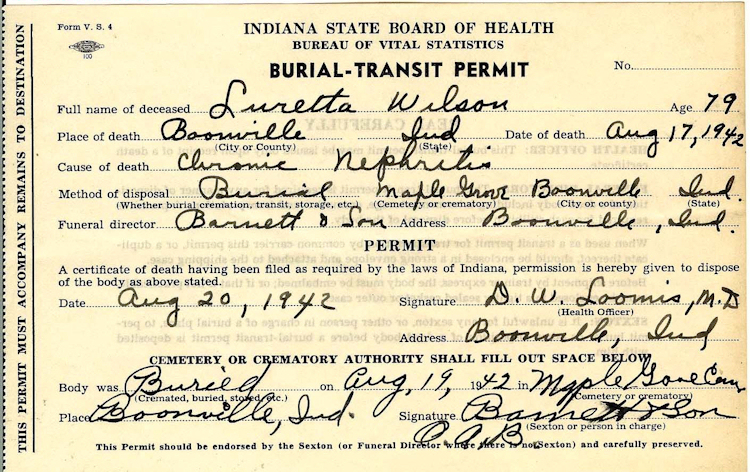 Form V. S. 4
100
INDIANA STATE BOARD OF HEALTH
BUREAU OF VITAL STATISTICS
BURIAL-TRANSIT PERMIT
No.
Full name of deceased Luretta Wilson Age 79
Place of death Boonville Ind Date of death Aug 17, 1942
(City or County) (State)
Cause of death Chronic Nephritis
Method of disposal Burial Maple Grove Boonville Ind.
(Whether burial cremation, transit, storage, etc.) (Cemetery or crematory) (City or county) (State)
Funeral director Barnett & Son Address Boonville, Ind.
PERMIT
A certificate of death having been filed as required by the laws of Indiana, permission is hereby given to dispose
of the body as above stated.
Date Aug 20, 1942 Signature D. W. Loomis, M.D
(Health Officer)
Address Boonville, Ind
CEMETERY OR CREMATORY AUTHORITY SHALL FILL OUT SPACE BELOW
Body was Buried on Aug, 19, 1942 in Maple Grove Cem
(Cremated, buried, stored, etc.) (Cemetery or crematory)
Place Boonville, Ind. Signature Barnett & Son
(Sexton or person in charge)
O. A. B.
This Permit should be endorsed by the Sexton (or Funeral Director where there is not Sexton) and carefully preserved.
THIS PERMIT MUST ACCOMPANY REMAINS TO DESTINATION